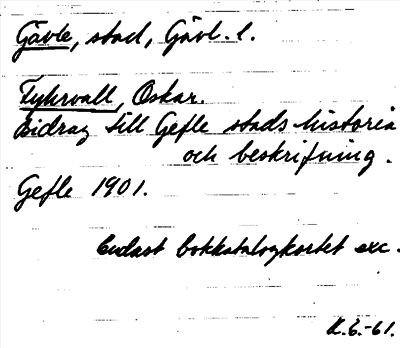 Gävle, stad, Gävl. l.
Fyhrvall, Oskar.
Bidrag till Gefle stads historia
och beskrifning.
Gefle 1901.
Endast bokkatalogkortet exc.
K. 6.-61.